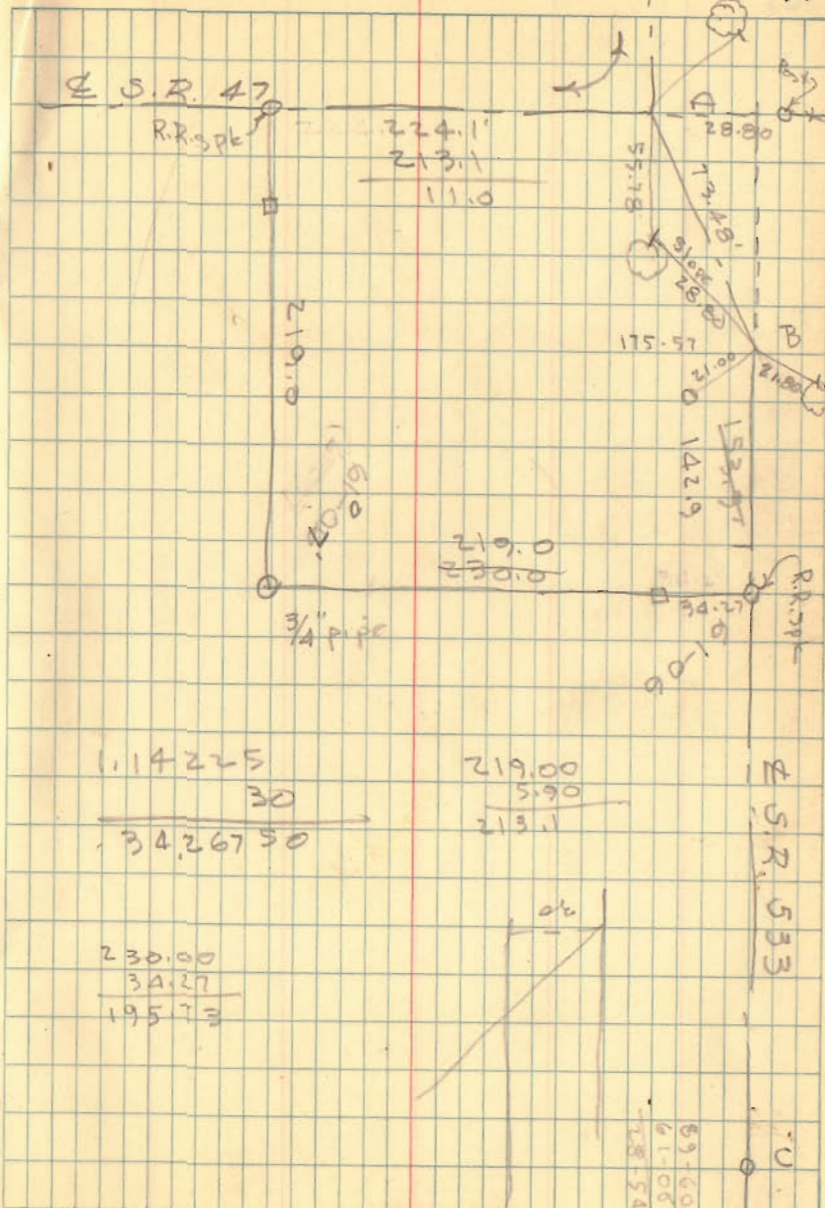 ℄ S.R. 47
R.R. spk
224.1'
213.1
11.0
A
28.80
Post
55.78
73.48'
slope
28.80
B
175.57
21.00
21.80
219.0
153.97
142.9
219.0
230.0
3/4" pipe
34.27
R.R. spk
1.14225
30
34.26750
219.00
5.90
213.1
℄ S.R. 533
230.00
34.27
195.73
30
89-60
61-06
28-54
C